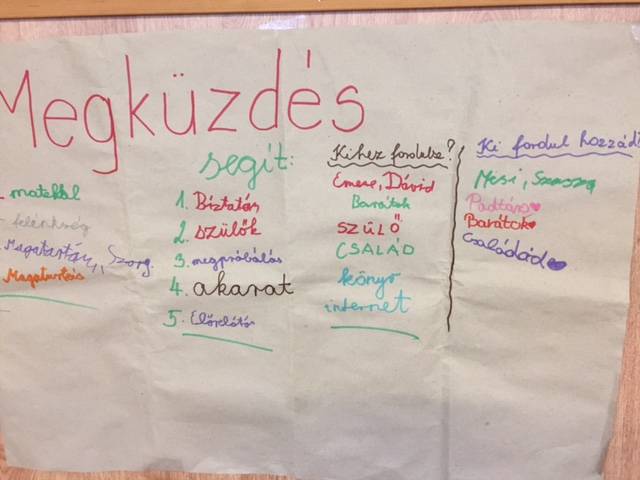 Megküzdés
matekkal
félénkség
Magatartás, Szorg.
Magatartás
segít:
1. Biztatás
2. szülők
3. megpróbálás
4. akarat
5. Előrelátás
Kihez fordulsz?
Emese, Dávid
Barátok
SZÜLŐ
CSALÁD
könyv
internet
Ki fordul hozzád
Mesi,
Padtárs
Barátok
Családod